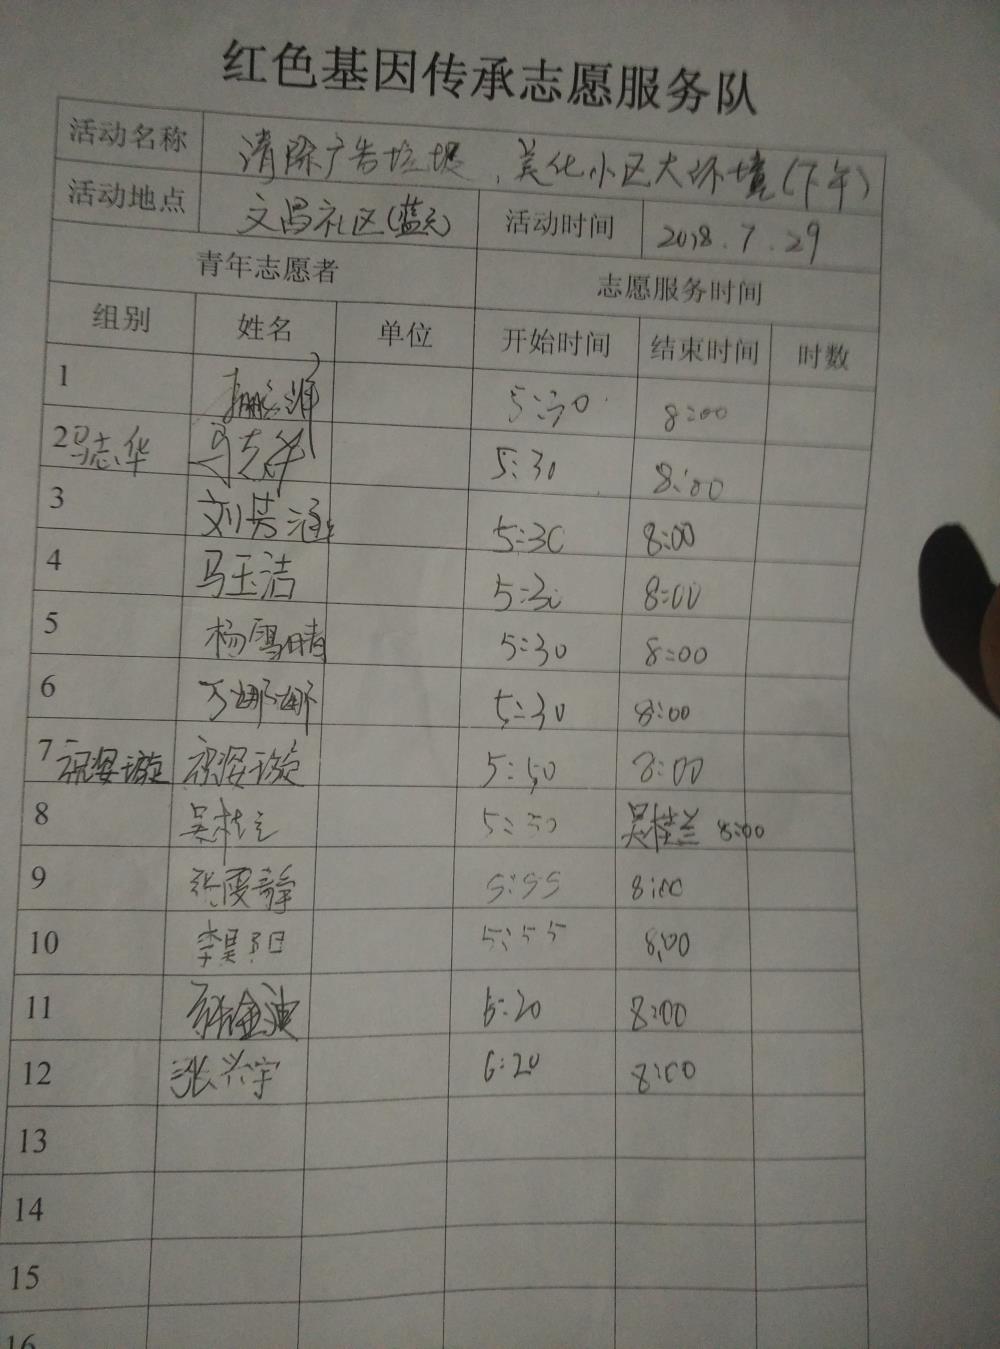 红色基因传承志愿服务队
活动名称 清除广告垃圾,美化小区大环境(下午)
活动地点 文昌社区(蓝天) 活动时间 2018.7.29
青年志愿者 志愿服务时间
组别 姓名 单位 开始时间 结束时间 时数
1 5:30 8:00
2 马志华 马志华 5:30 8:00
3 刘芳涵 5:30 8:00
4 马玉洁 5:30 8:00
5 杨雪晴 5:30 8:00
6 万娜娜 5:30 8:00
7 祝姿璇 祝姿璇 5:50 8:00
8 吴桂兰 5:50 吴桂兰 8:00
9 张霞静 5:55 8:00
10 李昊阳 5:55 8:00
11 6:20 8:00
12 张兴宇 6:20 8:00
13
14
15
16